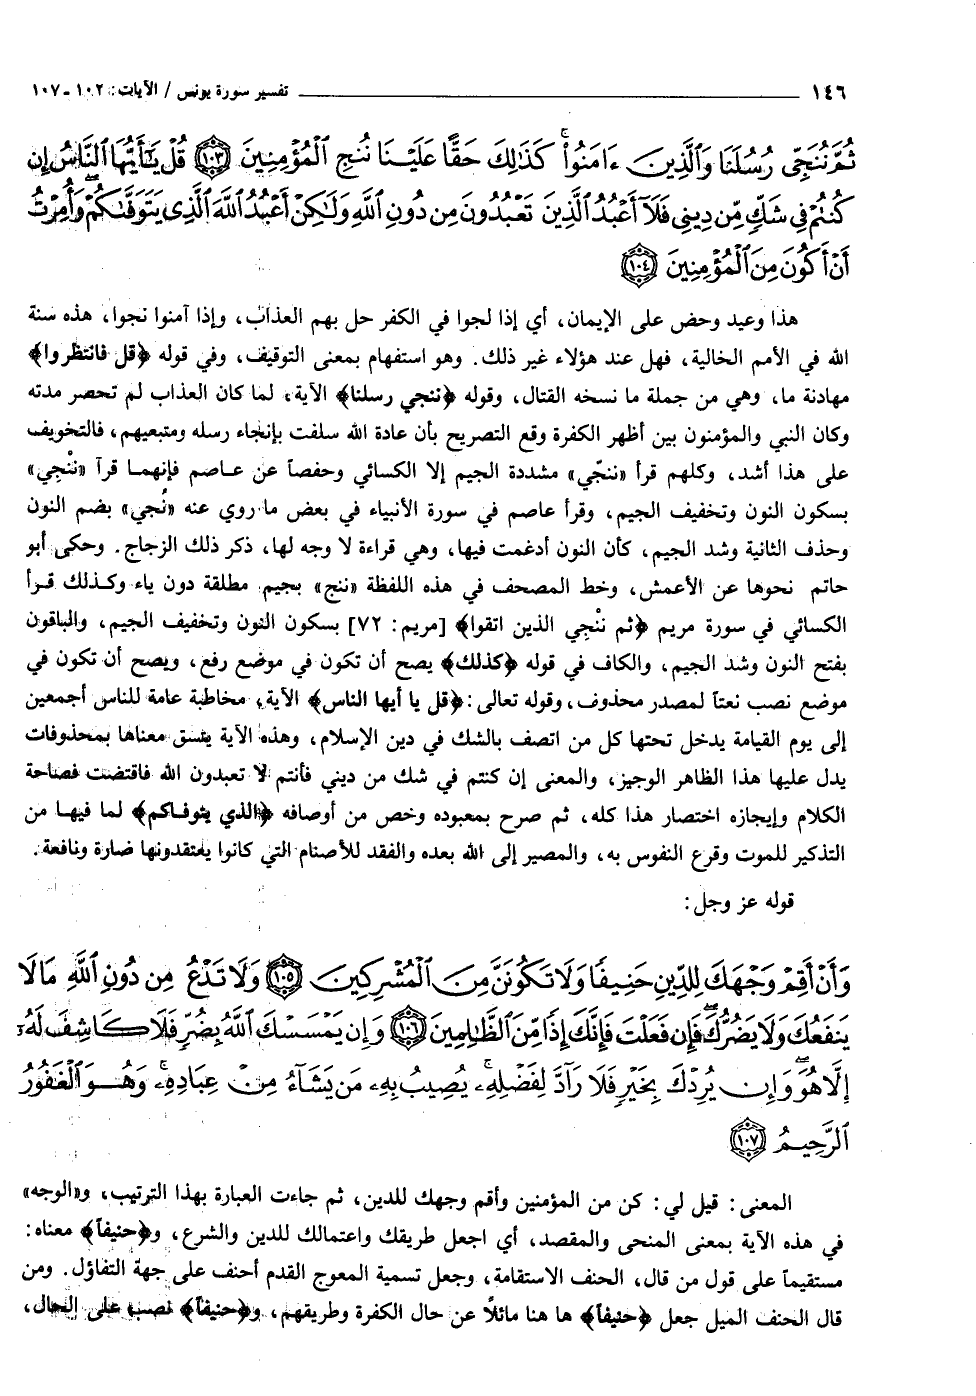 ١٤٦ تفسير سورة يونس / الآيات: ١٠٢ - ١٠٧
ثُمَّ نُنَجِّى رُسُلَنَا وَٱلَّذِينَ ءَامَنُوا۟ ۚ كَذَٰلِكَ حَقًّا عَلَيْنَا نُنجِ ٱلْمُؤْمِنِينَ ﴿١٠٣﴾ قُلْ يَٰٓأَيُّهَا ٱلنَّاسُ إِن
كُنتُمْ فِى شَكٍّ مِّن دِينِى فَلَآ أَعْبُدُ ٱلَّذِينَ تَعْبُدُونَ مِن دُونِ ٱللَّهِ وَلَٰكِنْ أَعْبُدُ ٱللَّهَ ٱلَّذِى يَتَوَفَّىٰكُمْ ۖ وَأُمِرْتُ
أَنْ أَكُونَ مِنَ ٱلْمُؤْمِنِينَ ﴿١٠٤﴾
هذا وعيد وحض على الإيمان، أي إذا لجوا في الكفر حل بهم العذاب، وإذا آمنوا نجوا، هذه سنة
الله في الأمم الخالية، فهل عند هؤلاء غير ذلك. وهو استفهام بمعنى التوقيف، وفي قوله ﴿قل فانتظروا﴾
مهادنة ما، وهي من جملة ما نسخه القتال، وقوله ﴿ننجي رسلنا﴾ الآية، لما كان العذاب لم تحصر مدته
وكان النبي والمؤمنون بين أظهر الكفرة وقع التصريح بأن عادة الله سلفت بإنجاء رسله ومتبعيهم، فالتخويف
على هذا أشد، وكلهم قرأ «ننجّي» مشددة الجيم إلا الكسائي وحفصاً عن عاصم فإنهما قرآ «ننْجِي»
بسكون النون وتخفيف الجيم، وقرأ عاصم في سورة الأنبياء في بعض ما روي عنه «نُجي» بضم النون
وحذف الثانية وشد الجيم، كأن النون أدغمت فيها، وهي قراءة لا وجه لها، ذكر ذلك الزجاج. وحكى أبو
حاتم نحوها عن الأعمش، وخط المصحف في هذه اللفظة «ننج» بجيم مطلقة دون ياء وكذلك قرأ
الكسائي في سورة مريم ﴿ثم ننْجي الذين اتقوا﴾ [مريم: ٧٢] بسكون النون وتخفيف الجيم، والباقون
بفتح النون وشد الجيم، والكاف في قوله ﴿كذلك﴾ يصح أن تكون في موضع رفع، ويصح أن تكون في
موضع نصب نعتاً لمصدر محذوف، وقوله تعالى: ﴿قل يا أيها الناس﴾ الآية، مخاطبة عامة للناس أجمعين
إلى يوم القيامة يدخل تحتها كل من اتصف بالشك في دين الإسلام، وهذه الآية يتسق معناها بمحذوفات
يدل عليها هذا الظاهر الوجيز، والمعنى إن كنتم في شك من ديني فأنتم لا تعبدون الله فاقتضت فصاحة
الكلام وإيجازه اختصار هذا كله، ثم صرح بمعبوده وخص من أوصافه ﴿الذي يتوفاكم﴾ لما فيها من
التذكير للموت وقرع النفوس به، والمصير إلى الله بعده والفقد للأصنام التي كانوا يعتقدونها ضارة ونافعة.
قوله عز وجل:
وَأَنْ أَقِمْ وَجْهَكَ لِلدِّينِ حَنِيفًا وَلَا تَكُونَنَّ مِنَ ٱلْمُشْرِكِينَ ﴿١٠٥﴾ وَلَا تَدْعُ مِن دُونِ ٱللَّهِ مَا لَا
يَنفَعُكَ وَلَا يَضُرُّكَ ۖ فَإِن فَعَلْتَ فَإِنَّكَ إِذًا مِّنَ ٱلظَّٰلِمِينَ ﴿١٠٦﴾ وَإِن يَمْسَسْكَ ٱللَّهُ بِضُرٍّ فَلَا كَاشِفَ لَهُۥٓ
إِلَّا هُوَ ۖ وَإِن يُرِدْكَ بِخَيْرٍ فَلَا رَآدَّ لِفَضْلِهِۦ ۚ يُصِيبُ بِهِۦ مَن يَشَآءُ مِنْ عِبَادِهِۦ ۚ وَهُوَ ٱلْغَفُورُ
ٱلرَّحِيمُ ﴿١٠٧﴾
المعنى: قيل لي: كن من المؤمنين وأقم وجهك للدين، ثم جاءت العبارة بهذا الترتيب، و«الوجه»
في هذه الآية بمعنى المنحى والمقصد، أي اجعل طريقك واعتمالك للدين والشرع، و﴿حنيفاً﴾ معناه:
مستقيماً على قول من قال، الحنف الاستقامة، وجعل تسمية المعوج القدم أحنف على جهة التفاؤل. ومن
قال الحنف الميل جعل ﴿حنيفاً﴾ ها هنا مائلاً عن حال الكفرة وطريقهم، و﴿حنيفاً﴾ نصب على الحال،